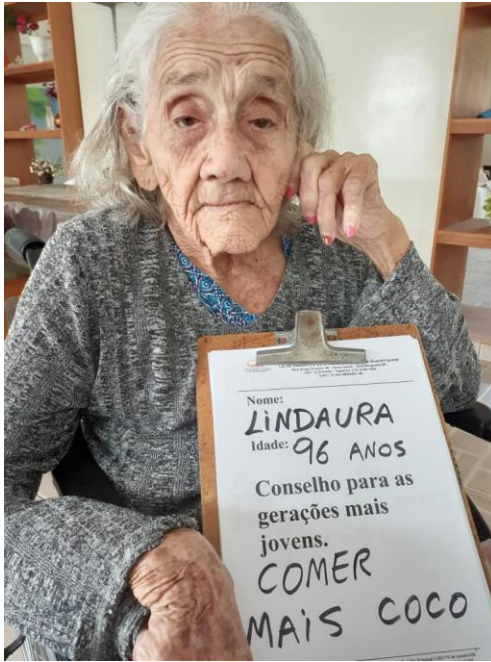 Nome:
LINDAURA
Idade: 96 ANOS
Conselho para as
gerações mais
jovens.
COMER
MAIS COCO